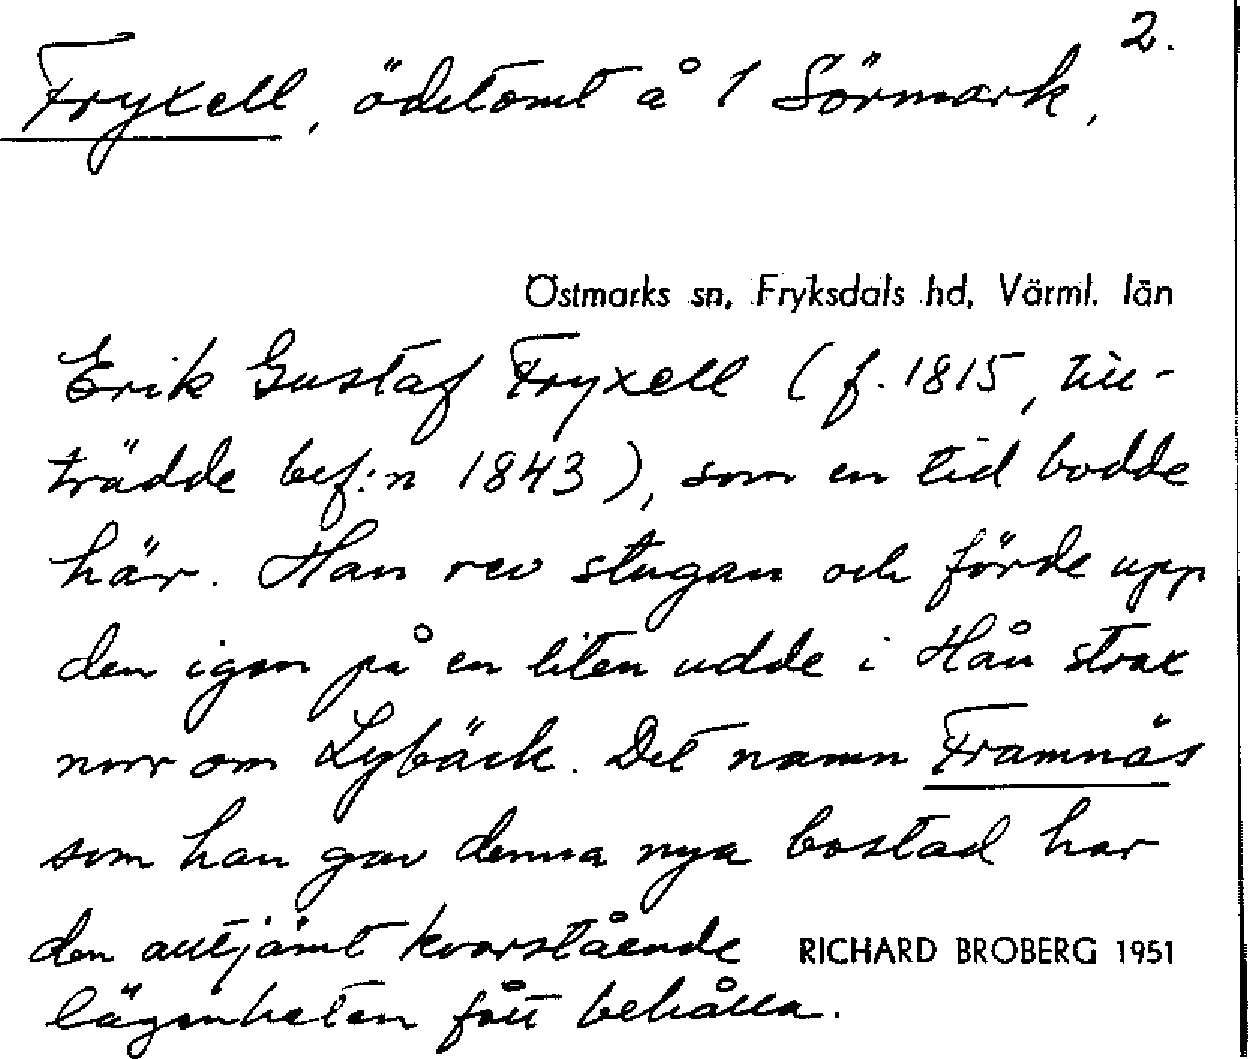 2.
Fryxell, ödetomt å 1 Sörmark,
Östmarks sn, Fryksdals hd, Värml. län
Erik Gustaf Fryxell (f. 1815, till-
trädde bef:n 1843), som en tid bodde
här. Han rev stugan och förde upp
den igen på en liten udde i Hån strax
norr om Lybäck. Det namn Framnäs
som han gav denna nya bostad har
den alltjämt kvarstående RICHARD BROBERG 1951
lägenheten fått behålla.